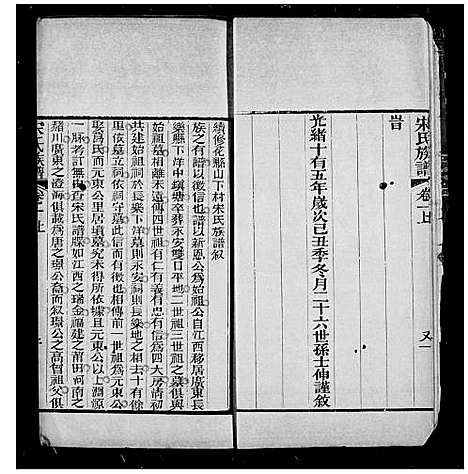 宋氏族譜 卷上
又一
旹
光緒十有五年歲次己丑季冬月二十六世孫士伸謹敘
續修花縣山下村宋氏族譜敘
族之有譜以徵信也譜以新恩公爲始祖公自江西移居廣東長
樂縣下洋中填塘卒葬永安雙日平地二世祖三世祖之墓俱與
始祖墓相離未遠傳四世祖有仁有義有忠有信爲四大房淸初
共建始祖祠於長樂下洋墓則永安祠則長樂地之相去十有餘
里依墓立祠依祠守墓此信而有徵也相傳前一世祖爲元東公
娶馮氏而元東公里居墳墓究未得所依據且元東公以上淵源
一脉考訂無由查宋氏譜牒如江西之瑞金福建之莆田柯南之
緒川廣東之澄海俱載爲唐之璟公裔而叙璟公之高曾祖父俱
宋氏族譜 卷上